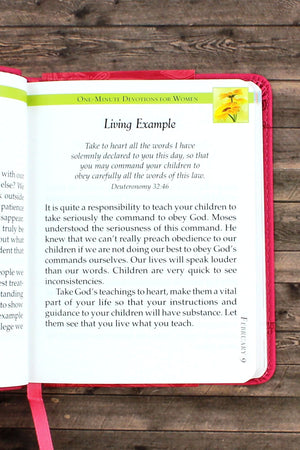 with our
else? We
outside
patience
sappear.
truly be
out what
dent that
eople we
est treat-
standing
to show
example
lege we
ONE-MINUTE DEVOTIONS FOR WOMEN
Living Example
Take to heart all the words I have
solemnly declared to you this day, so that
you may command your children to
obey carefully all the words of this law.
Deuteronomy 32:46
It is quite a responsibility to teach your children to
take seriously the command to obey God. Moses
understood the seriousness of this command. He
knew that we can't really preach obedience to our
children if we are not doing our best to obey God's
commands ourselves. Our lives will speak louder
than our words. Children are very quick to see
inconsistencies.
Take God's teachings to heart, make them a vital
part of your life so that your instructions and
guidance to your children will have substance. Let
them see that you live what you teach.
FEBRUARY 9